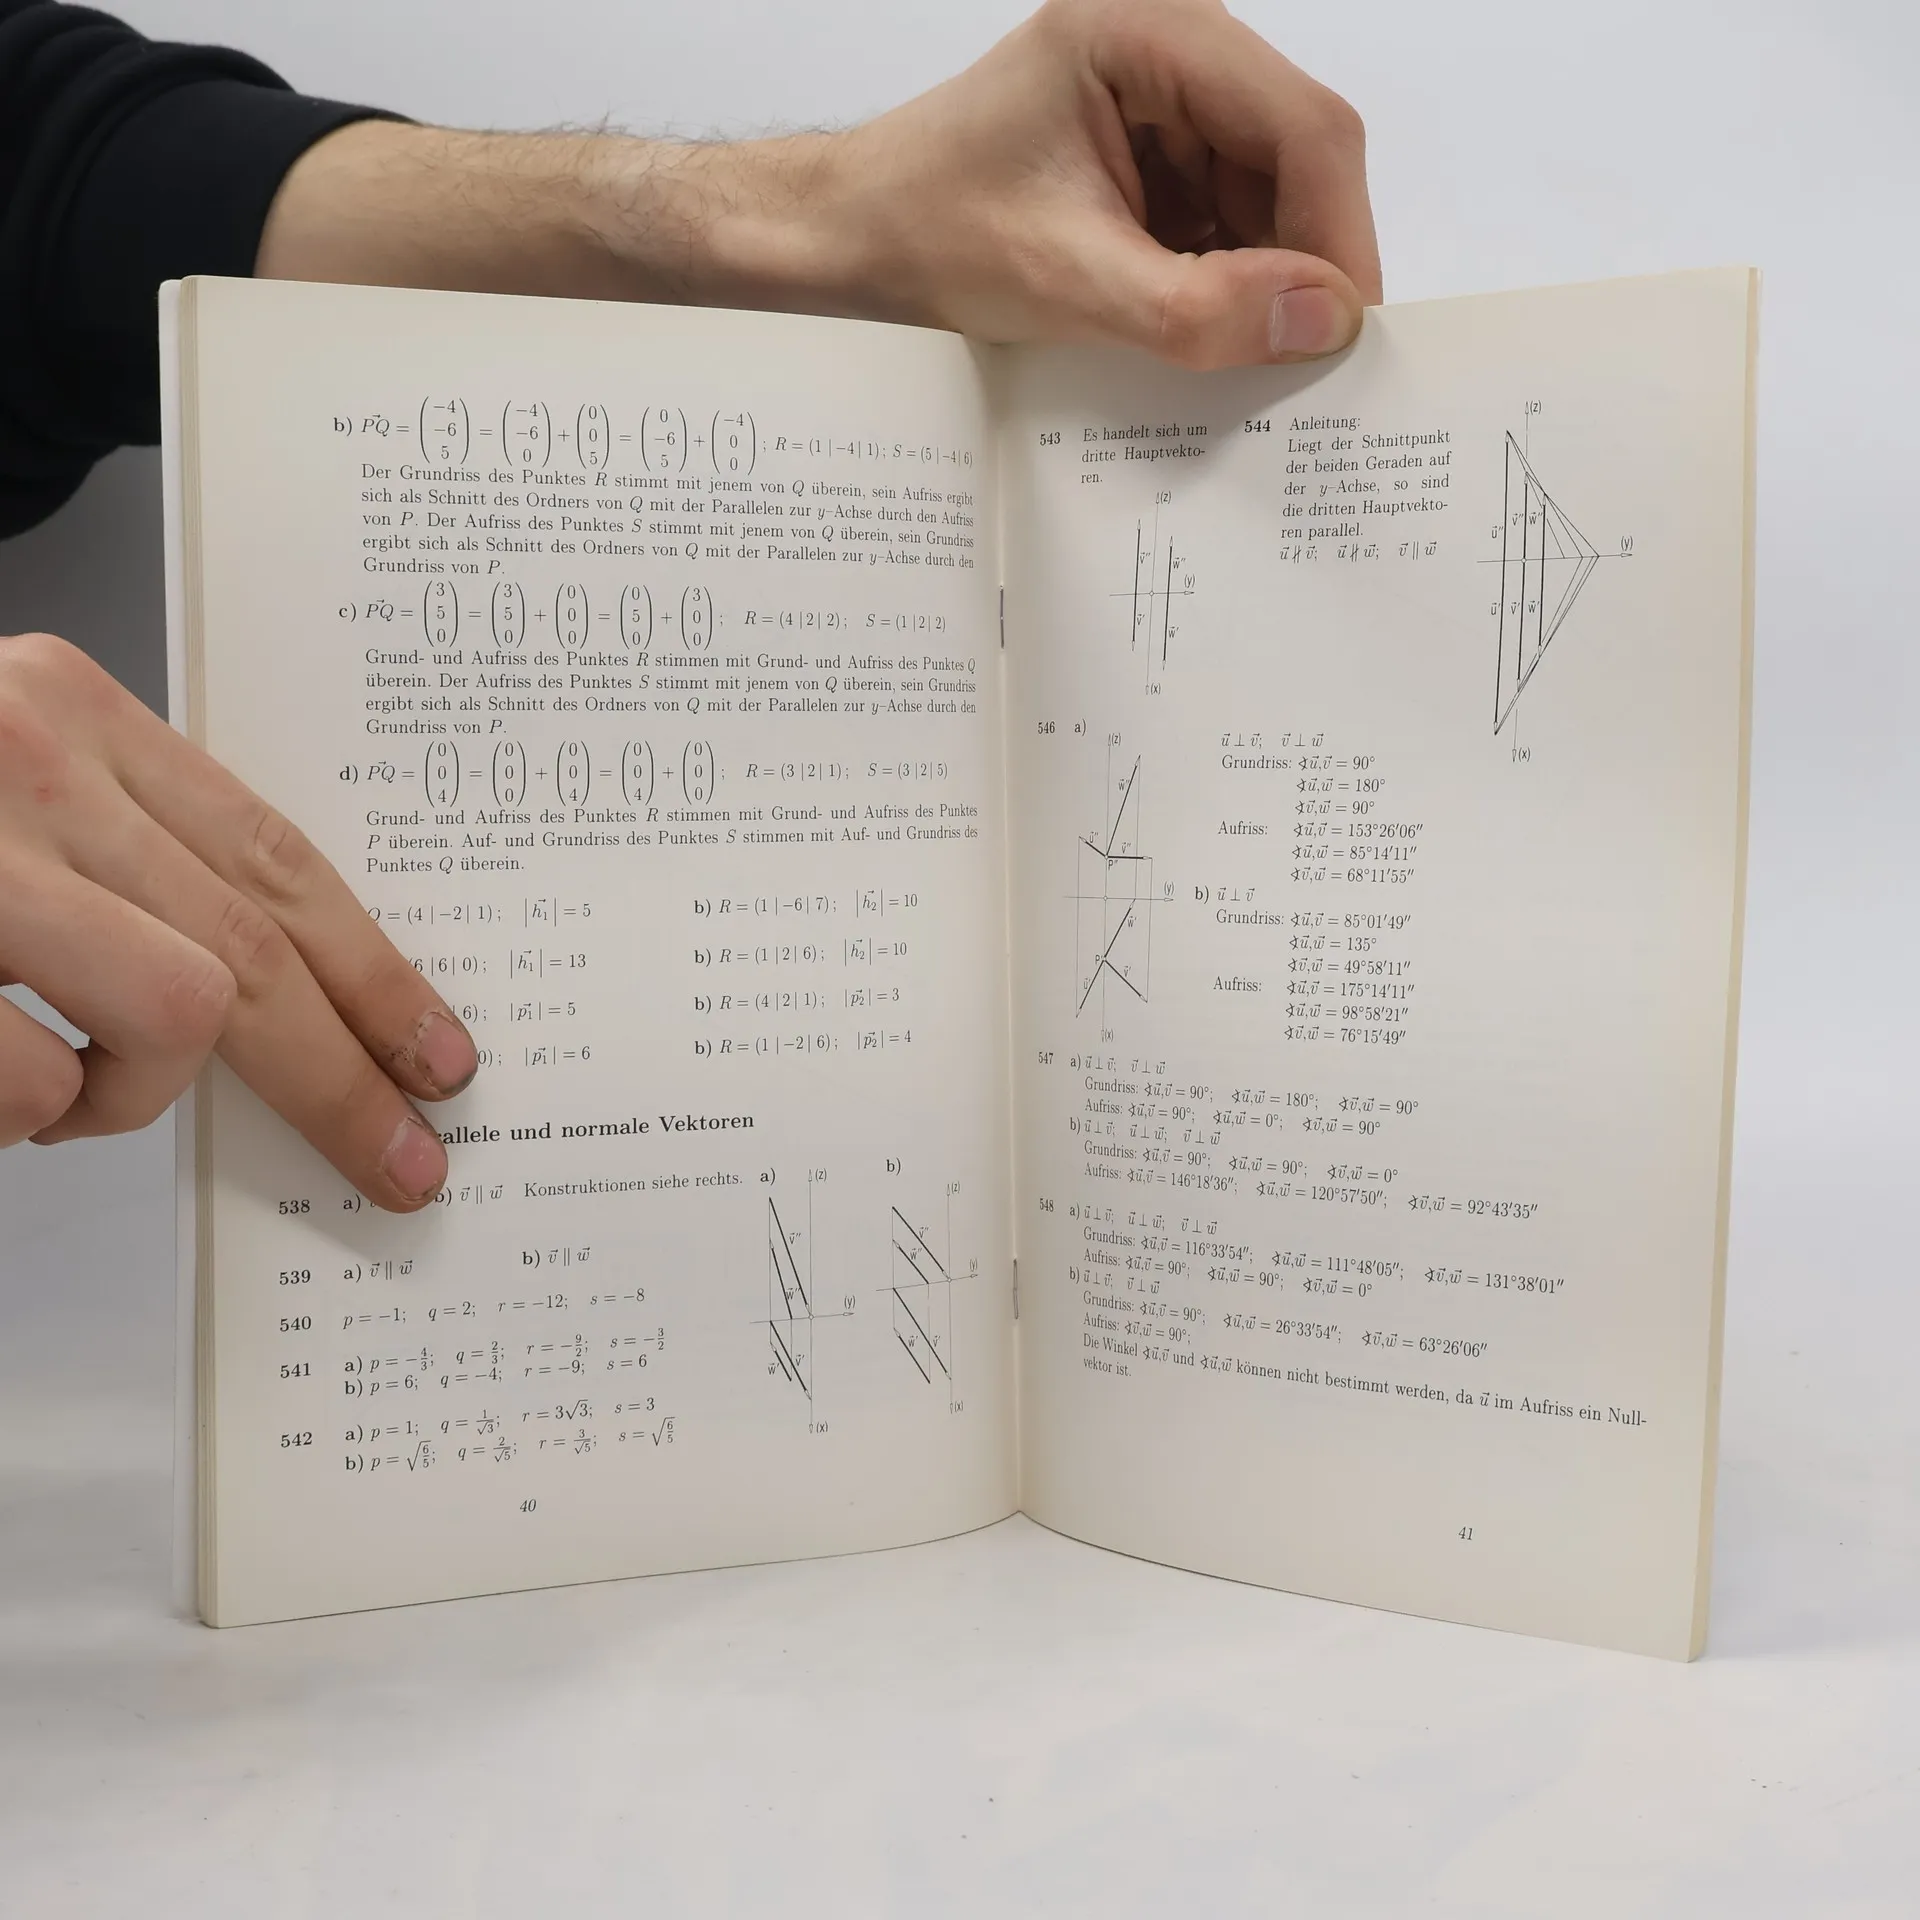 b) P⃗Q = (−4 −6 5) = (−4 −6 0) + (0 0 5) = (0 −6 5) + (−4 0 0) ; R = (1 | −4 | 1); S = (5 | −4 | 6)
Der Grundriss des Punktes R stimmt mit jenem von Q überein, sein Aufriss ergibt
sich als Schnitt des Ordners von Q mit der Parallelen zur y–Achse durch den Aufriss
von P. Der Aufriss des Punktes S stimmt mit jenem von Q überein, sein Grundriss
ergibt sich als Schnitt des Ordners von Q mit der Parallelen zur y–Achse durch den
Grundriss von P.
c) P⃗Q = (3 5 0) = (3 5 0) + (0 0 0) = (0 5 0) + (3 0 0) ; R = (4 | 2 | 2); S = (1 | 2 | 2)
Grund- und Aufriss des Punktes R stimmen mit Grund- und Aufriss des Punktes Q
überein. Der Aufriss des Punktes S stimmt mit jenem von Q überein, sein Grundriss
ergibt sich als Schnitt des Ordners von Q mit der Parallelen zur y–Achse durch den
Grundriss von P.
d) P⃗Q = (0 0 4) = (0 0 0) + (0 0 4) = (0 0 4) + (0 0 0) ; R = (3 | 2 | 1); S = (3 | 2 | 5)
Grund- und Aufriss des Punktes R stimmen mit Grund- und Aufriss des Punktes
P überein. Auf- und Grundriss des Punktes S stimmen mit Auf- und Grundriss des
Punktes Q überein.
Q = (4 | −2 | 1); |h⃗₁| = 5 b) R = (1 | −6 | 7); |h⃗₂| = 10
6 | 6 | 0); |h⃗₁| = 13 b) R = (1 | 2 | 6); |h⃗₂| = 10
| 6); |p⃗₁| = 5 b) R = (4 | 2 | 1); |p⃗₂| = 3
0); |p⃗₁| = 6 b) R = (1 | −2 | 6); |p⃗₂| = 4
allele und normale Vektoren
538 a) b) v⃗ ∥ w⃗ Konstruktionen siehe rechts. a) b)
(z) v⃗″ w⃗″ (y) w⃗′ v⃗′ (x)
(z) v⃗″ w⃗″ (y) w⃗′ v⃗′ (x)
539 a) v⃗ ∥ w⃗ b) v⃗ ∥ w⃗
540 p = −1; q = 2; r = −12; s = −8
541 a) p = −4/3; q = 2/3; r = −9/2; s = −3/2
b) p = 6; q = −4; r = −9; s = 6
542 a) p = 1; q = 1/√3; r = 3√3; s = 3
b) p = √(6/5); q = 2/√5; r = 3/√5; s = √(6/5)
40
543 Es handelt sich um
dritte Hauptvekto-
ren.
(z) v⃗″ w⃗″ (y) v⃗′ w⃗′ (x)
544 Anleitung:
Liegt der Schnittpunkt
der beiden Geraden auf
der y–Achse, so sind
die dritten Hauptvekto-
ren parallel.
u⃗ ∦ v⃗; u⃗ ∦ w⃗; v⃗ ∥ w⃗
(z) u⃗″ v⃗″ w⃗″ (y) u⃗′ v⃗′ w⃗′ (x)
546 a)
(z) w⃗″ u⃗″ v⃗″ P″ (y) w⃗′ P′ u⃗′ v⃗′ (x)
u⃗ ⊥ v⃗; v⃗ ⊥ w⃗
Grundriss: ∢u⃗,v⃗ = 90°
∢u⃗,w⃗ = 180°
∢v⃗,w⃗ = 90°
Aufriss: ∢u⃗,v⃗ = 153°26′06″
∢u⃗,w⃗ = 85°14′11″
∢v⃗,w⃗ = 68°11′55″
b) u⃗ ⊥ v⃗
Grundriss: ∢u⃗,v⃗ = 85°01′49″
∢u⃗,w⃗ = 135°
∢v⃗,w⃗ = 49°58′11″
Aufriss: ∢u⃗,v⃗ = 175°14′11″
∢u⃗,w⃗ = 98°58′21″
∢v⃗,w⃗ = 76°15′49″
547 a) u⃗ ⊥ v⃗; v⃗ ⊥ w⃗
Grundriss: ∢u⃗,v⃗ = 90°; ∢u⃗,w⃗ = 180°; ∢v⃗,w⃗ = 90°
Aufriss: ∢u⃗,v⃗ = 90°; ∢u⃗,w⃗ = 0°; ∢v⃗,w⃗ = 90°
b) u⃗ ⊥ v⃗; u⃗ ⊥ w⃗; v⃗ ⊥ w⃗
Grundriss: ∢u⃗,v⃗ = 90°; ∢u⃗,w⃗ = 90°; ∢v⃗,w⃗ = 0°
Aufriss: ∢u⃗,v⃗ = 146°18′36″; ∢u⃗,w⃗ = 120°57′50″; ∢v⃗,w⃗ = 92°43′35″
548 a) u⃗ ⊥ v⃗; u⃗ ⊥ w⃗; v⃗ ⊥ w⃗
Grundriss: ∢u⃗,v⃗ = 116°33′54″; ∢u⃗,w⃗ = 111°48′05″; ∢v⃗,w⃗ = 131°38′01″
Aufriss: ∢u⃗,v⃗ = 90°; ∢u⃗,w⃗ = 90°; ∢v⃗,w⃗ = 0°
b) u⃗ ⊥ v⃗; v⃗ ⊥ w⃗
Grundriss: ∢u⃗,v⃗ = 90°; ∢u⃗,w⃗ = 26°33′54″; ∢v⃗,w⃗ = 63°26′06″
Aufriss: ∢v⃗,w⃗ = 90°;
Die Winkel ∢u⃗,v⃗ und ∢u⃗,w⃗ können nicht bestimmt werden, da u⃗ im Aufriss ein Null-
vektor ist.
41